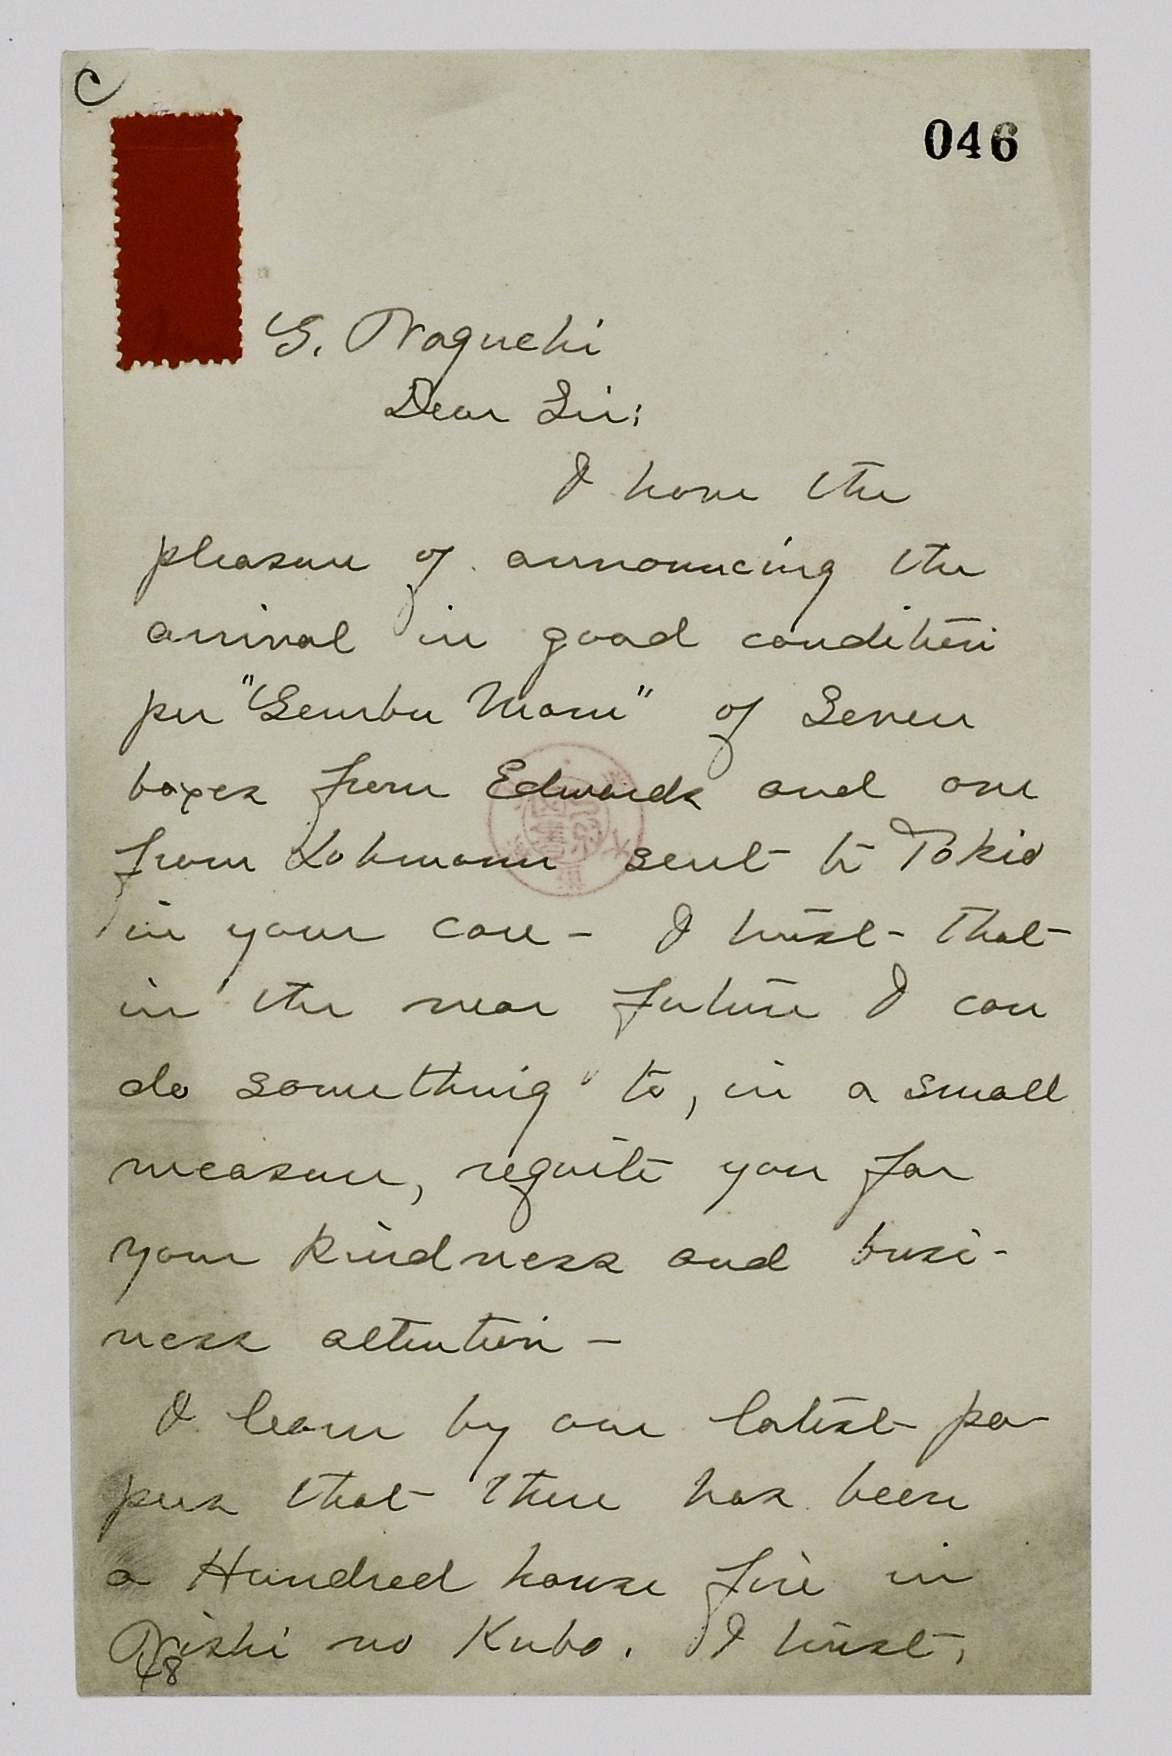 C
046
G. Noguchi
Dear Sir;
I have the
pleasure of announcing the
arrival in good condition
per "Gembu Maru" of Seven
boxes from Edwards and one
from Lohmann sent to Tokio
in your care - I trust that
in the near future I can
do something to, in a small
measure, requite you for
your kindness and busi-
ness attention -
I learn by our latest pa-
pers that there has been
a Hundred house fire in
Nishi no Kubo. I trust,
48